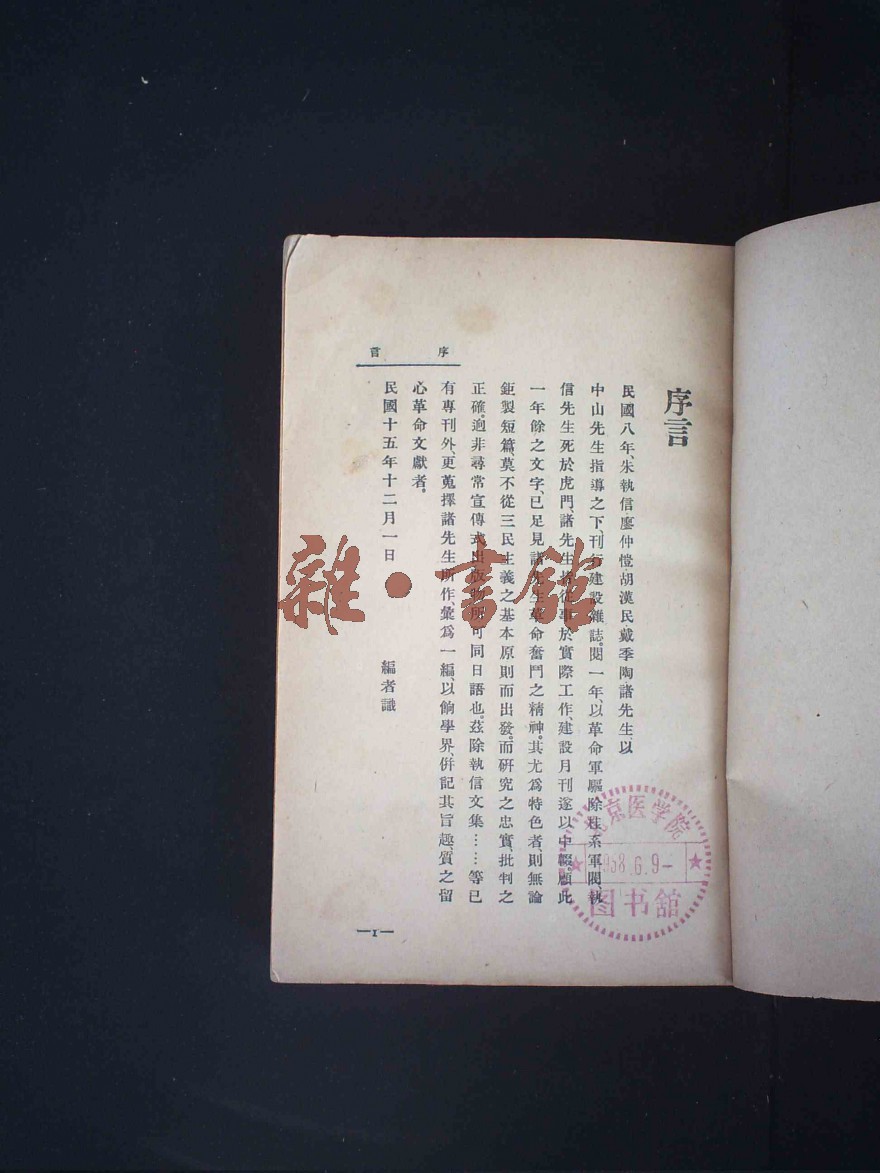 序言
序言
民國八年、朱執信廖仲愷胡漢民戴季陶諸先生、以
中山先生指導之下、刊行建設雜誌。閱一年、以革命軍驅除桂系軍閥、執
信先生死於虎門、諸先生皆從事於實際工作、建設月刊遂以中輟。顧此
一年餘之文字、已足見諸先生革命奮鬥之精神。其尤爲特色者、則無論
鉅製短篇、莫不從三民主義之基本原則而出發。而研究之忠實、批判之
正確。迥非尋常宣傳式出版物所可同日語也。茲除執信文集……等已
有專刊外、更蒐擇諸先生所作、彙爲一編、以餉學界、併記其旨趣、質之留
心革命文獻者。
民國十五年十二月一日 編者識
—1—
北京医学院
1958.6.9-
图书舘
雜·書館